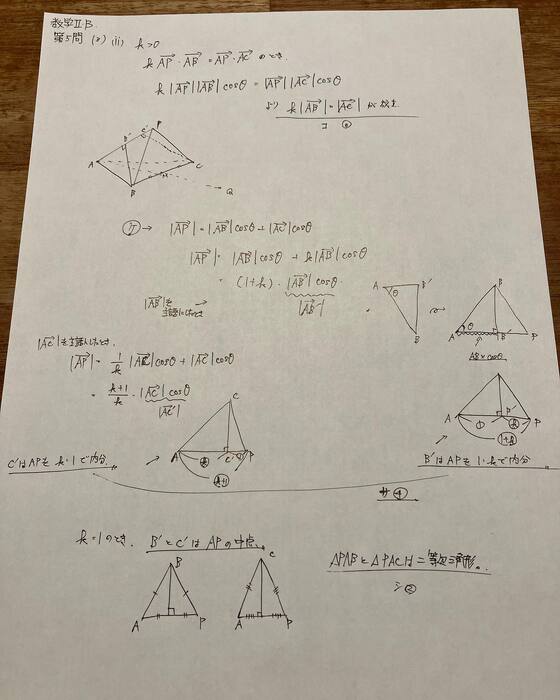 数学ⅡB.
第5問 (2) (ii) k>0
k AP→・AB→ = AP→・AC→ のとき.
k|AP→||AB→|cosθ = |AP→||AC→|cosθ
より k|AB→|=|AC→| が成立
コ ⓪
A B' C' P B M C Q
ア → |AP→|=|AB→|cosθ+|AC→|cosθ
|AP→| = |AB→|cosθ + k|AB→|cosθ
= (1+k)・|AB→|cosθ
|AB'→|
|AB→|を主語にしたとき →
A B' θ B
B A θ B' P
AB×cosθ
|AC→|を主語にしたとき.
|AP→| = 1/k |AC→|cosθ + |AC→|cosθ
= k+1/k ・|AC→|cosθ
|AC'→|
C A C' P k 1 k+1
A B' P 1 k 1+k
C'はAPを k:1で内分.
B'はAPを 1:kで内分
サ ④
k=1のとき. B'とC'はAPの中点.
△PABと△PACは二等辺三角形.
シ ②
B A P
C A P